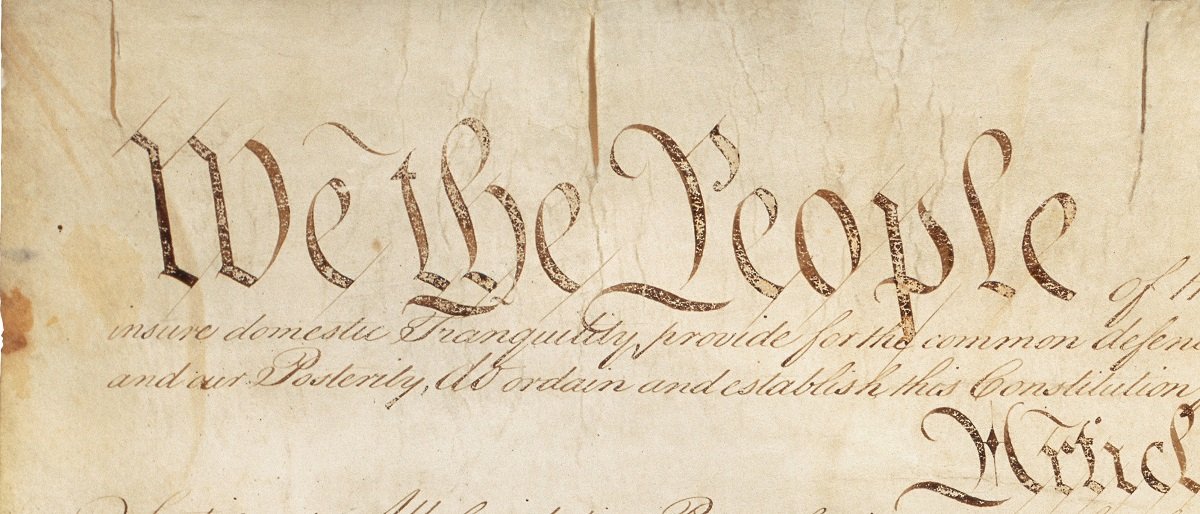 We the People of
insure domestic Tranquility, provide for the common defen
and our Posterity, do ordain and establish this Constitution
Articl